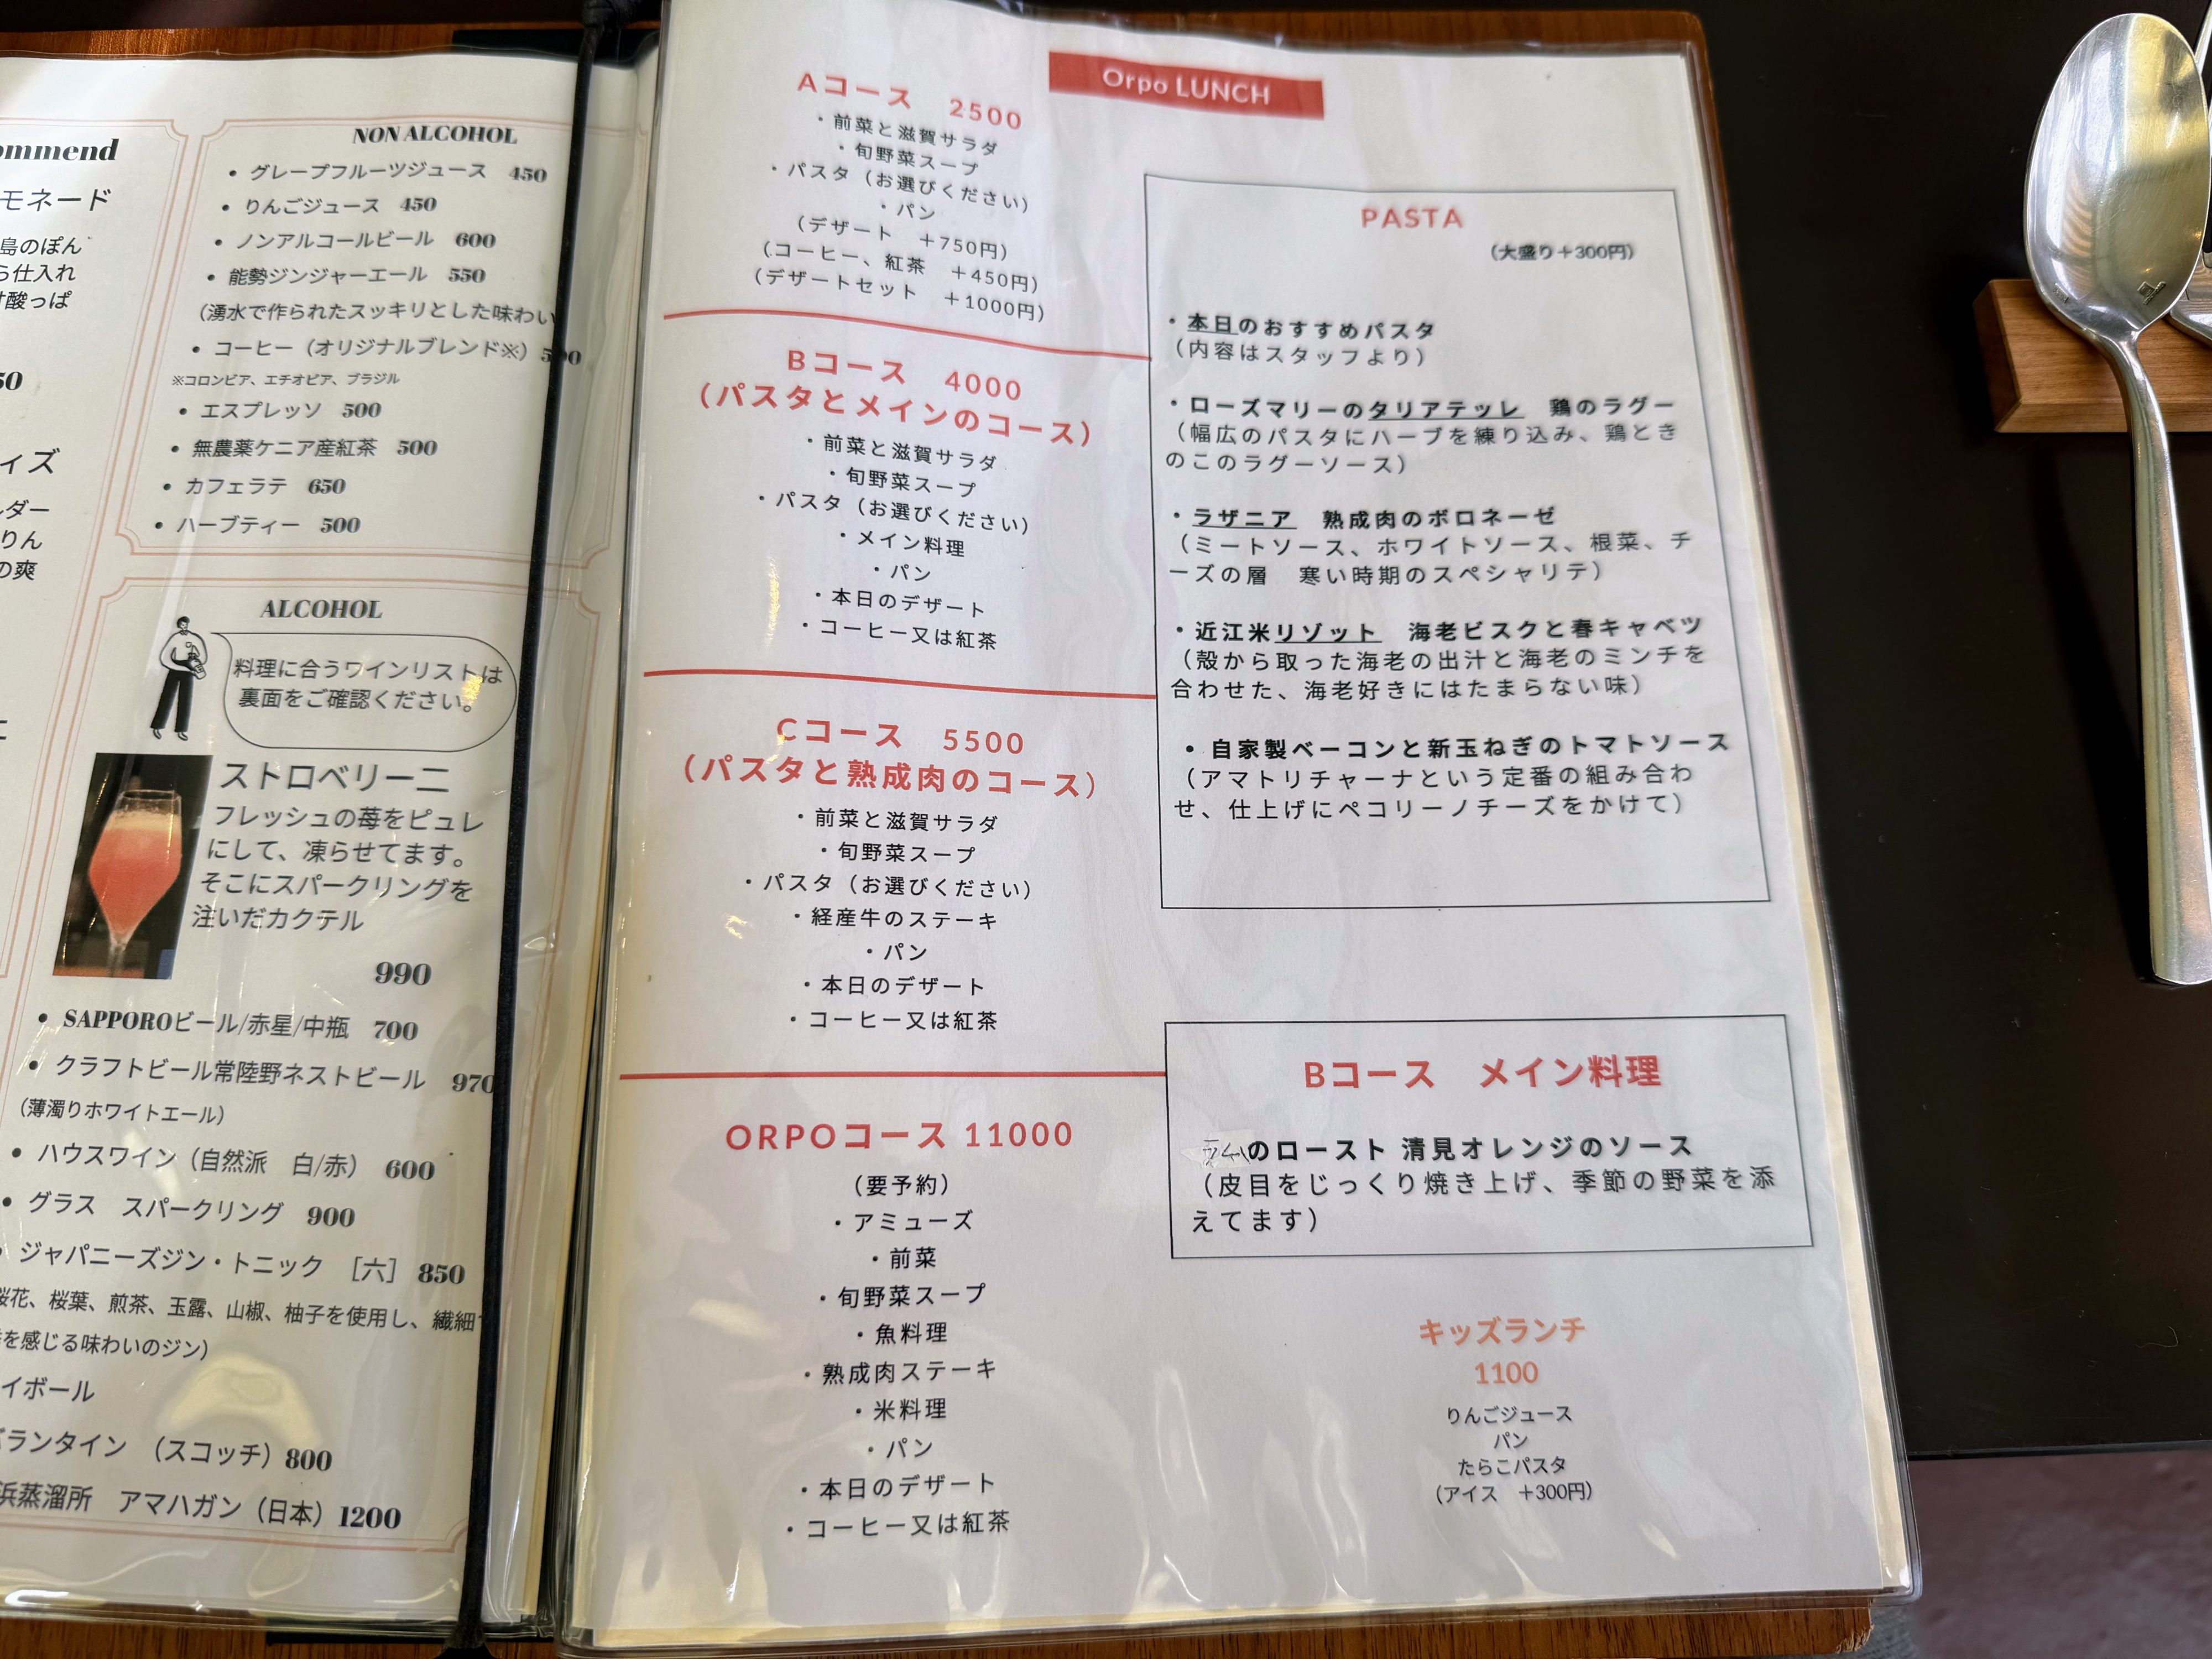 ommend
モネード
島のぽん
ら仕入れ
酸っぱ
50
ィズ
ルダー
りん
の爽
NON ALCOHOL
• グレープフルーツジュース 450
• りんごジュース 450
• ノンアルコールビール 600
• 能勢ジンジャーエール 550
（湧水で作られたスッキリとした味わい
• コーヒー（オリジナルブレンド※）
※コロンビア、エチオピア、ブラジル
• エスプレッソ 500
• 無農薬ケニア産紅茶 500
• カフェラテ 650
• ハーブティー 500
ALCOHOL
料理に合うワインリストは
裏面をご確認ください。
ストロベリーニ
フレッシュの苺をピュレ
にして、凍らせてます。
そこにスパークリングを
注いだカクテル
990
• SAPPOROビール/赤星/中瓶 700
• クラフトビール常陸野ネストビール 970
（薄濁りホワイトエール）
• ハウスワイン（自然派 白/赤） 600
• グラス スパークリング 900
• ジャパニーズジン・トニック ［六］ 850
桜花、桜葉、煎茶、玉露、山椒、柚子を使用し、繊細
を感じる味わいのジン）
イボール
ランタイン （スコッチ）800
浜蒸溜所 アマハガン（日本）1200
Orpo LUNCH
Aコース 2500
・前菜と滋賀サラダ
・旬野菜スープ
・パスタ（お選びください）
・パン
（デザート ＋750円）
（コーヒー、紅茶 ＋450円）
（デザートセット ＋1000円）
Bコース 4000
（パスタとメインのコース）
・前菜と滋賀サラダ
・旬野菜スープ
・パスタ（お選びください）
・メイン料理
・パン
・本日のデザート
・コーヒー又は紅茶
Cコース 5500
（パスタと熟成肉のコース）
・前菜と滋賀サラダ
・旬野菜スープ
・パスタ（お選びください）
・経産牛のステーキ
・パン
・本日のデザート
・コーヒー又は紅茶
ORPOコース 11000
（要予約）
・アミューズ
・前菜
・旬野菜スープ
・魚料理
・熟成肉ステーキ
・米料理
・パン
・本日のデザート
・コーヒー又は紅茶
PASTA
（大盛り＋300円）
・本日のおすすめパスタ
（内容はスタッフより）
・ローズマリーのタリアテッレ 鶏のラグー
（幅広のパスタにハーブを練り込み、鶏とき
のこのラグーソース）
・ラザニア 熟成肉のボロネーゼ
（ミートソース、ホワイトソース、根菜、チ
ーズの層 寒い時期のスペシャリテ）
・近江米リゾット 海老ビスクと春キャベツ
（殻から取った海老の出汁と海老のミンチを
合わせた、海老好きにはたまらない味）
• 自家製ベーコンと新玉ねぎのトマトソース
（アマトリチャーナという定番の組み合わ
せ、仕上げにペコリーノチーズをかけて）
Bコース メイン料理
のロースト 清見オレンジのソース
（皮目をじっくり焼き上げ、季節の野菜を添
えてます）
キッズランチ
1100
りんごジュース
パン
たらこパスタ
（アイス ＋300円）